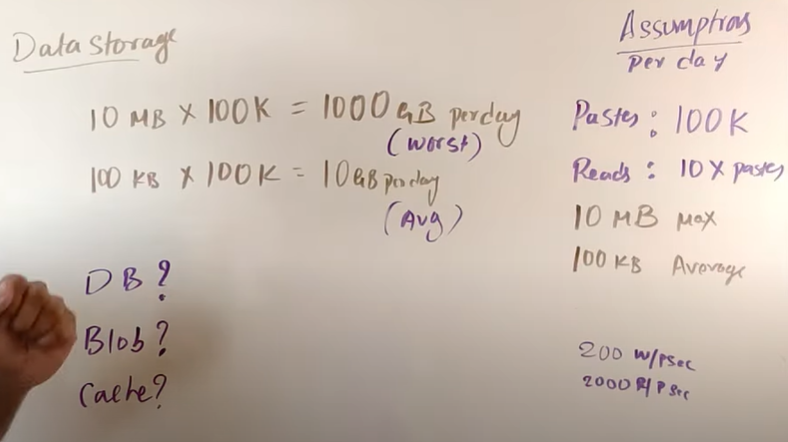 Data Storage
10 MB × 100K = 1000 GB per day
(worst)
100 KB × 100K = 10 GB per day
(Avg)
DB?
Blob?
Cache?
Assumptions
per day
Pastes: 100K
Reads: 10 X pastes
10 MB Max
100 KB Average
200 W/PSec
2000 R/PSec